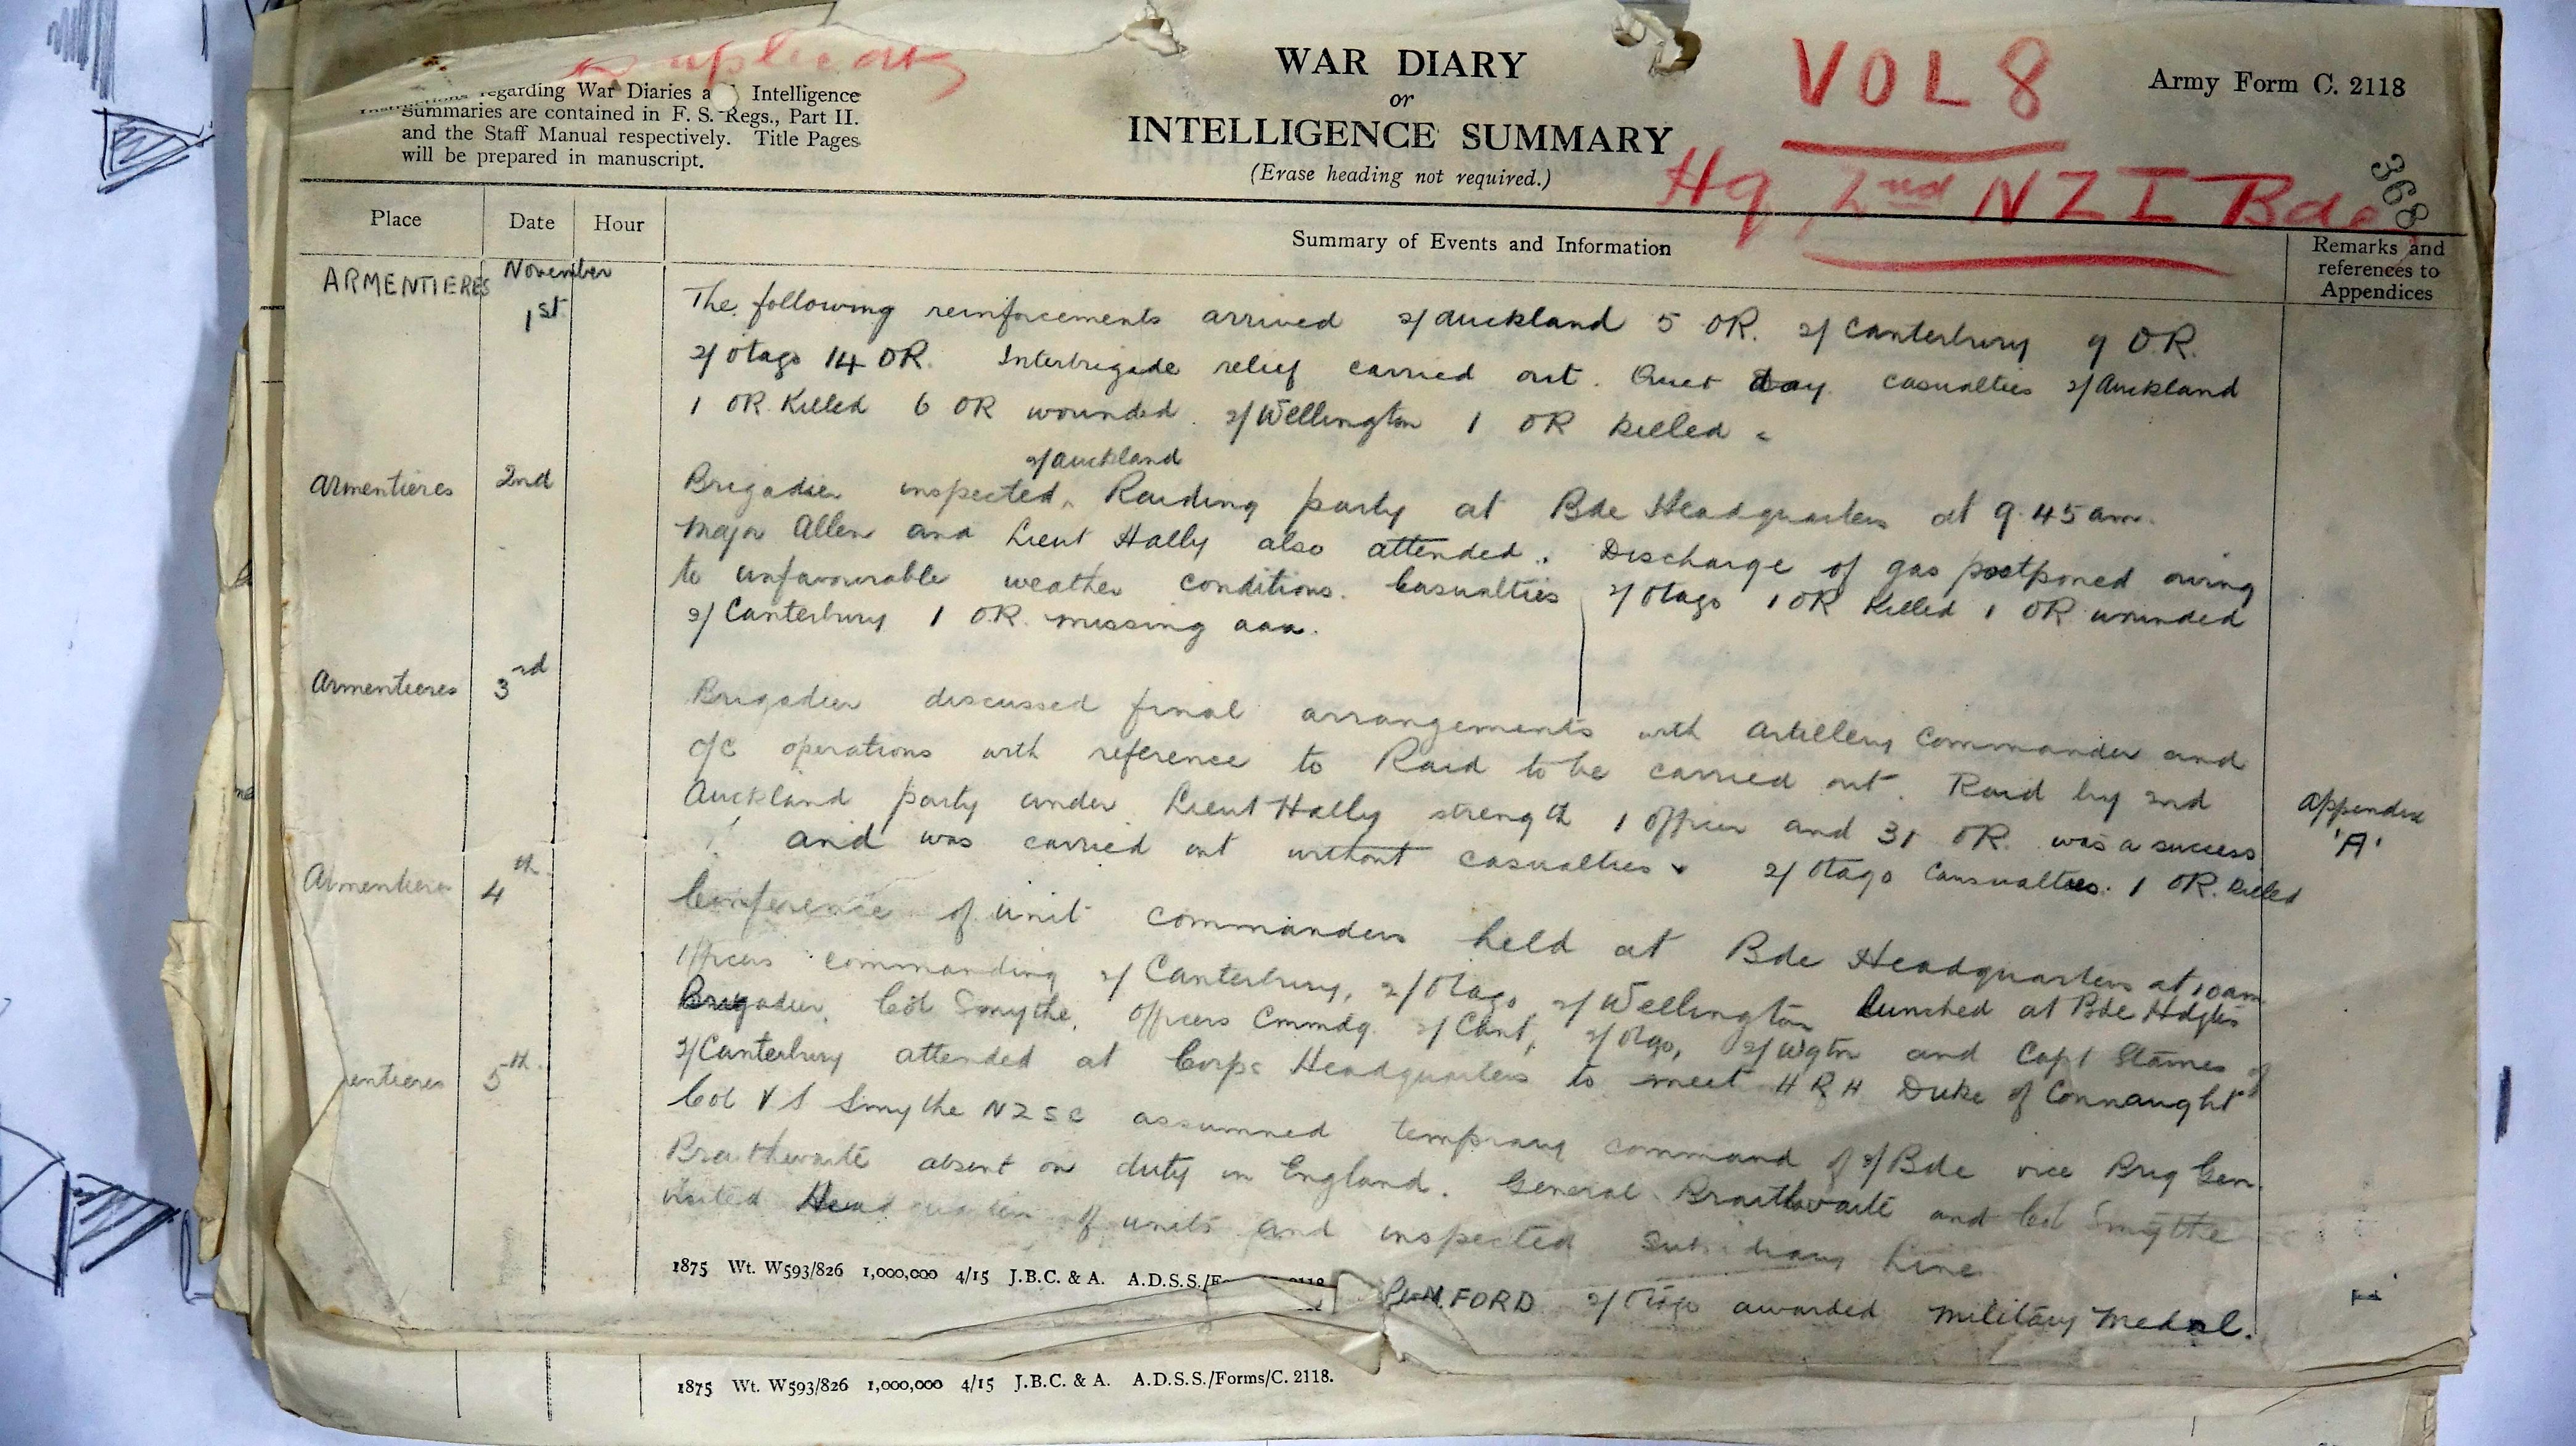 Duplicate
regarding War Diaries a Intelligence
Summaries are contained in F. S. Regs., Part II.
and the Staff Manual respectively. Title Pages
will be prepared in manuscript.
WAR DIARY
or
INTELLIGENCE SUMMARY
(Erase heading not required.)
VOL 8
Army Form C. 2118
Hq, 2nd NZI Bde
368
Place
Date
Hour
Summary of Events and Information
Remarks and
references to
Appendices
ARMENTIERES
November
1st
The following reinforcements arrived 2/Auckland 5 OR. 2/Canterbury 9 O.R.
2/Otago 14 OR. Interbrigade relief carried out. Quiet Day. Casualties 2/Auckland
1 OR Killed 6 OR wounded. 2/Wellington 1 OR killed.
Armentieres
2nd
2/Auckland
Brigadier inspected Raiding party at Bde Headquarters at 9.45 am.
Major Allen and Lieut Hally also attended. Discharge of gas postponed owing
to unfavourable weather conditions. Casualties 2/Otago 1 OR Killed 1 OR wounded
2/Canterbury 1 OR. missing aaa.
Armentieres
3rd
Brigadier discussed final arrangements with Artillery Commander and
O/C operations with reference to Raid to be carried out. Raid by 2nd
Auckland party under Lieut Hally strength 1 Officer and 31 OR. was a success
and was carried out without casualties. 2/Otago Causualties. 1 OR. Killed
Appendix
'A'
Armentieres
4th
Conference of unit commanders held at Bde Headquarters at 10 am
Officers commanding 2/Canterbury, 2/Otago, 2/Wellington lunched at Bde Hdqtrs
Brigadier, Col Smythe, Officers Cmmdg. 2/Cant, 2/Otgo, 2/Wgtn and Capt Starnes of
2/Canterbury attended at Corps Headquarters to meet HRH Duke of Connaught
entieres
5th
Col V S Smythe NZSC assumned temprary command of 2/Bde vice Brig Gen.
Braithwaite absent on duty in England. General Braithwaite and Col Smythe
visited Headquarters of units and inspected Subsidiary Line
FORD 2/Otago awarded Military Medal.
1875 Wt. W593/826 1,000,000 4/15 J.B.C. & A. A.D.S.S./F 2118
1875 Wt. W593/826 1,000,000 4/15 J.B.C. & A. A.D.S.S./Forms/C. 2118.